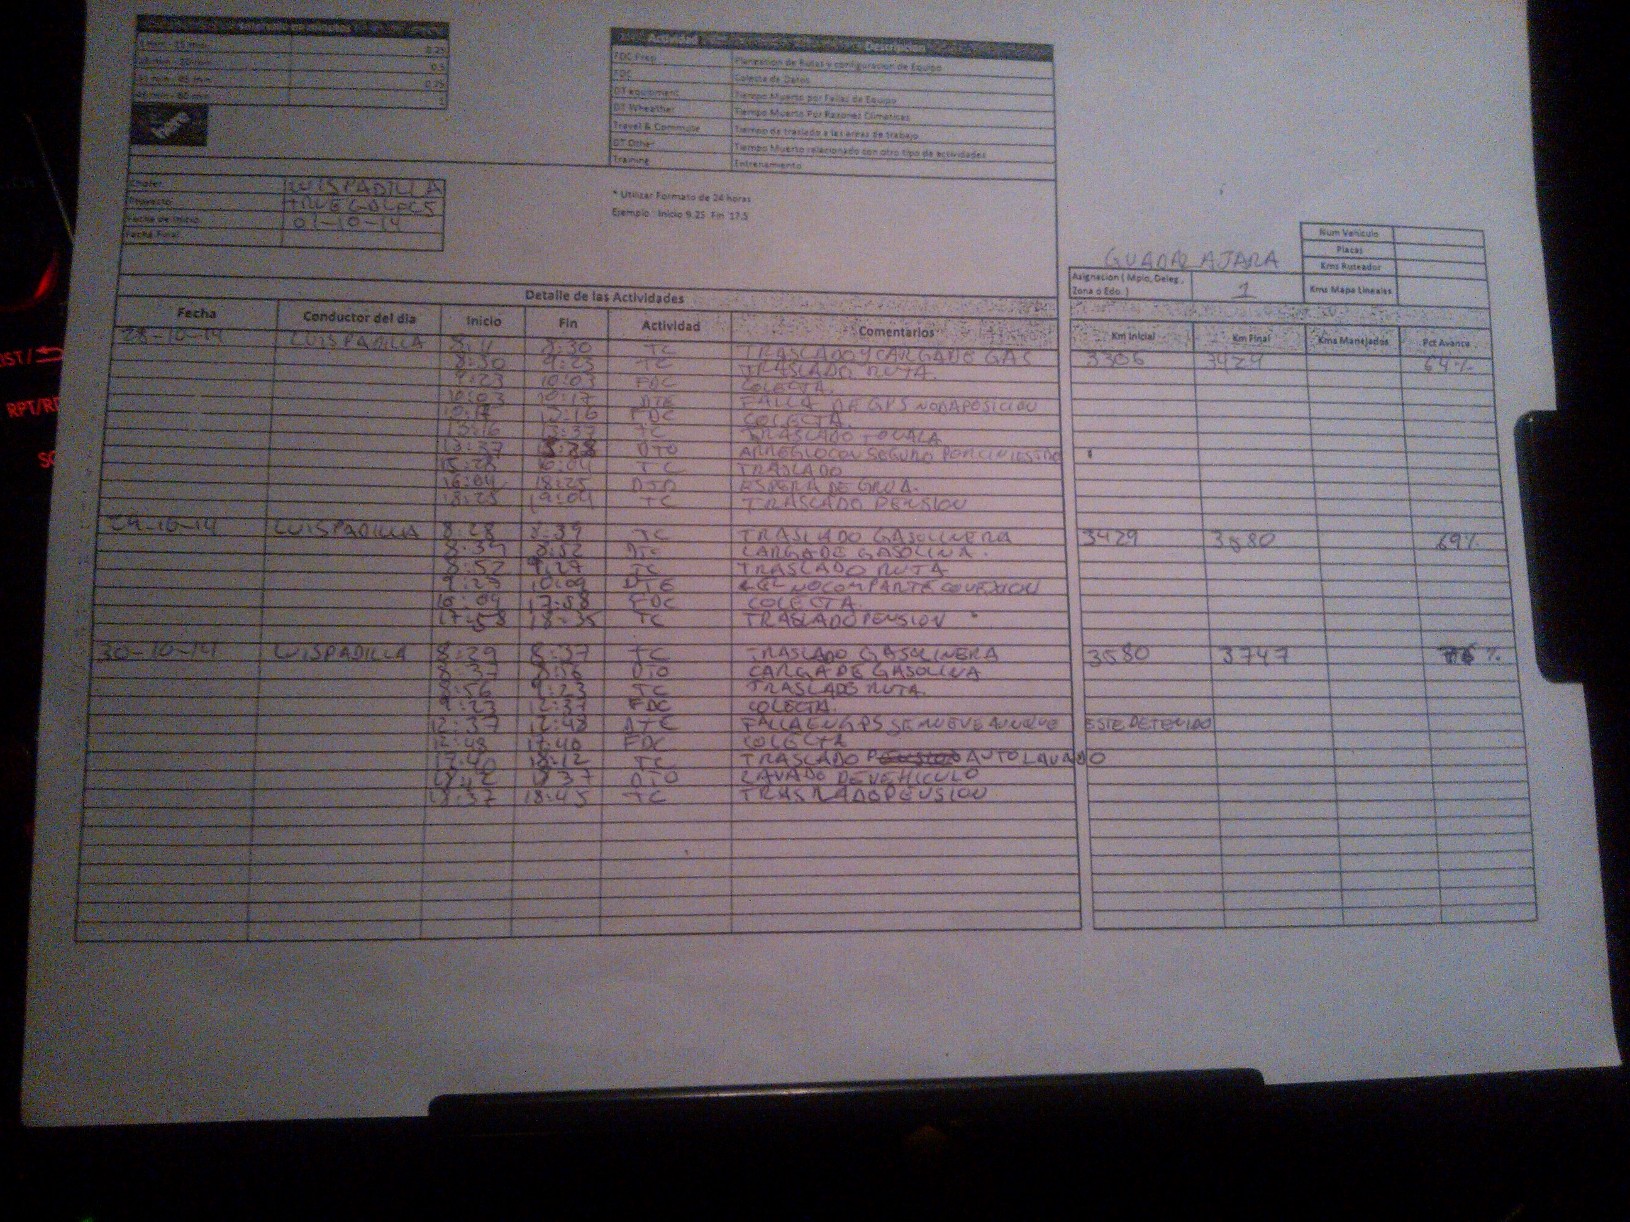 Intervalo en minutos
1 min - 15 min 0.25
0.5
0.75
1
here
Actividad Descripcion
FDC Prep Planeation de Rutas y configuracion de Equipo
FDC Colecta de Datos
DT equipment Tiempo Muerto por Fallas de Equipo
DT Wheather Tiempo Muerto Por Razones Climaticas
Travel & Commute Tiempo de traslado a las areas de trabajo
DT Other Tiempo Muerto relacionado con otro tipo de actividades
Training Entrenamiento
Chofer LUIS PADILLA
Proyecto
Fecha de Inicio 01-10-14
Fecha Final
* Utilizar Formato de 24 horas
Ejemplo: Inicio 9.25 Fin 17.5
GUADALAJARA
Asignacion ( Mpio, Deleg., Zona o Edo. ) 1
Num Vehiculo
Placas
Kms Ruteador
Kms Mapa Lineales
Detalle de las Actividades
Fecha Conductor del dia Inicio Fin Actividad Comentarios Km Inicial Km Final Kms Manejados Pct Avance
28-10-14 LUIS PADILLA 8:30 TC TRASLADO Y CARGA DE GAS 3306 3429 64%
8:30 9:23 TC TRASLADO RUTA.
9:23 10:03 FDC COLECTA.
10:03 10:17 DTE FALLA DE GPS NO DA POSICION
10:17 13:16 FDC COLECTA.
13:16 13:37 TC TRASLADO TONALA
13:37 DTO ARREGLO CON SEGURO POR CINIESTRO
15:28 16:04 TC TRASLADO
16:04 18:25 DTO ESPERA DE GRUA.
18:25 19:04 TC TRASCADO PENSION
29-10-14 LUIS PADILLA 8:28 8:39 TC TRASLADO GASOLINERA 3429 3580 69%
8:39 8:52 CARGA DE GASOLINA.
8:52 9:29 TC TRASLADO RUTA
9:29 10:09 DTE NO COMPARTE CONEXION
17:58 FDC COLECTA.
17:58 18:35 TC TRASLADO PENSION
30-10-14 LUIS PADILLA 8:29 8:37 TC TRASLADO GASOLINERA 3580 3747 %
8:37 8:56 DTO CARGA DE GASOLINA
8:56 9:23 TC TRASLADO RUTA.
9:23 12:37 FDC COLECTA.
12:37 12:48 DTE FALLA EN GPS SE MUEVE AUNQUE ESTE DETENIDO
12:48 17:40 FDC COLECTA
17:40 18:12 TC TRASLADO AUTOLAVADO
18:12 18:37 DTO LAVADO DE VEHICULO
18:37 18:45 TC TRASLADO PENSION